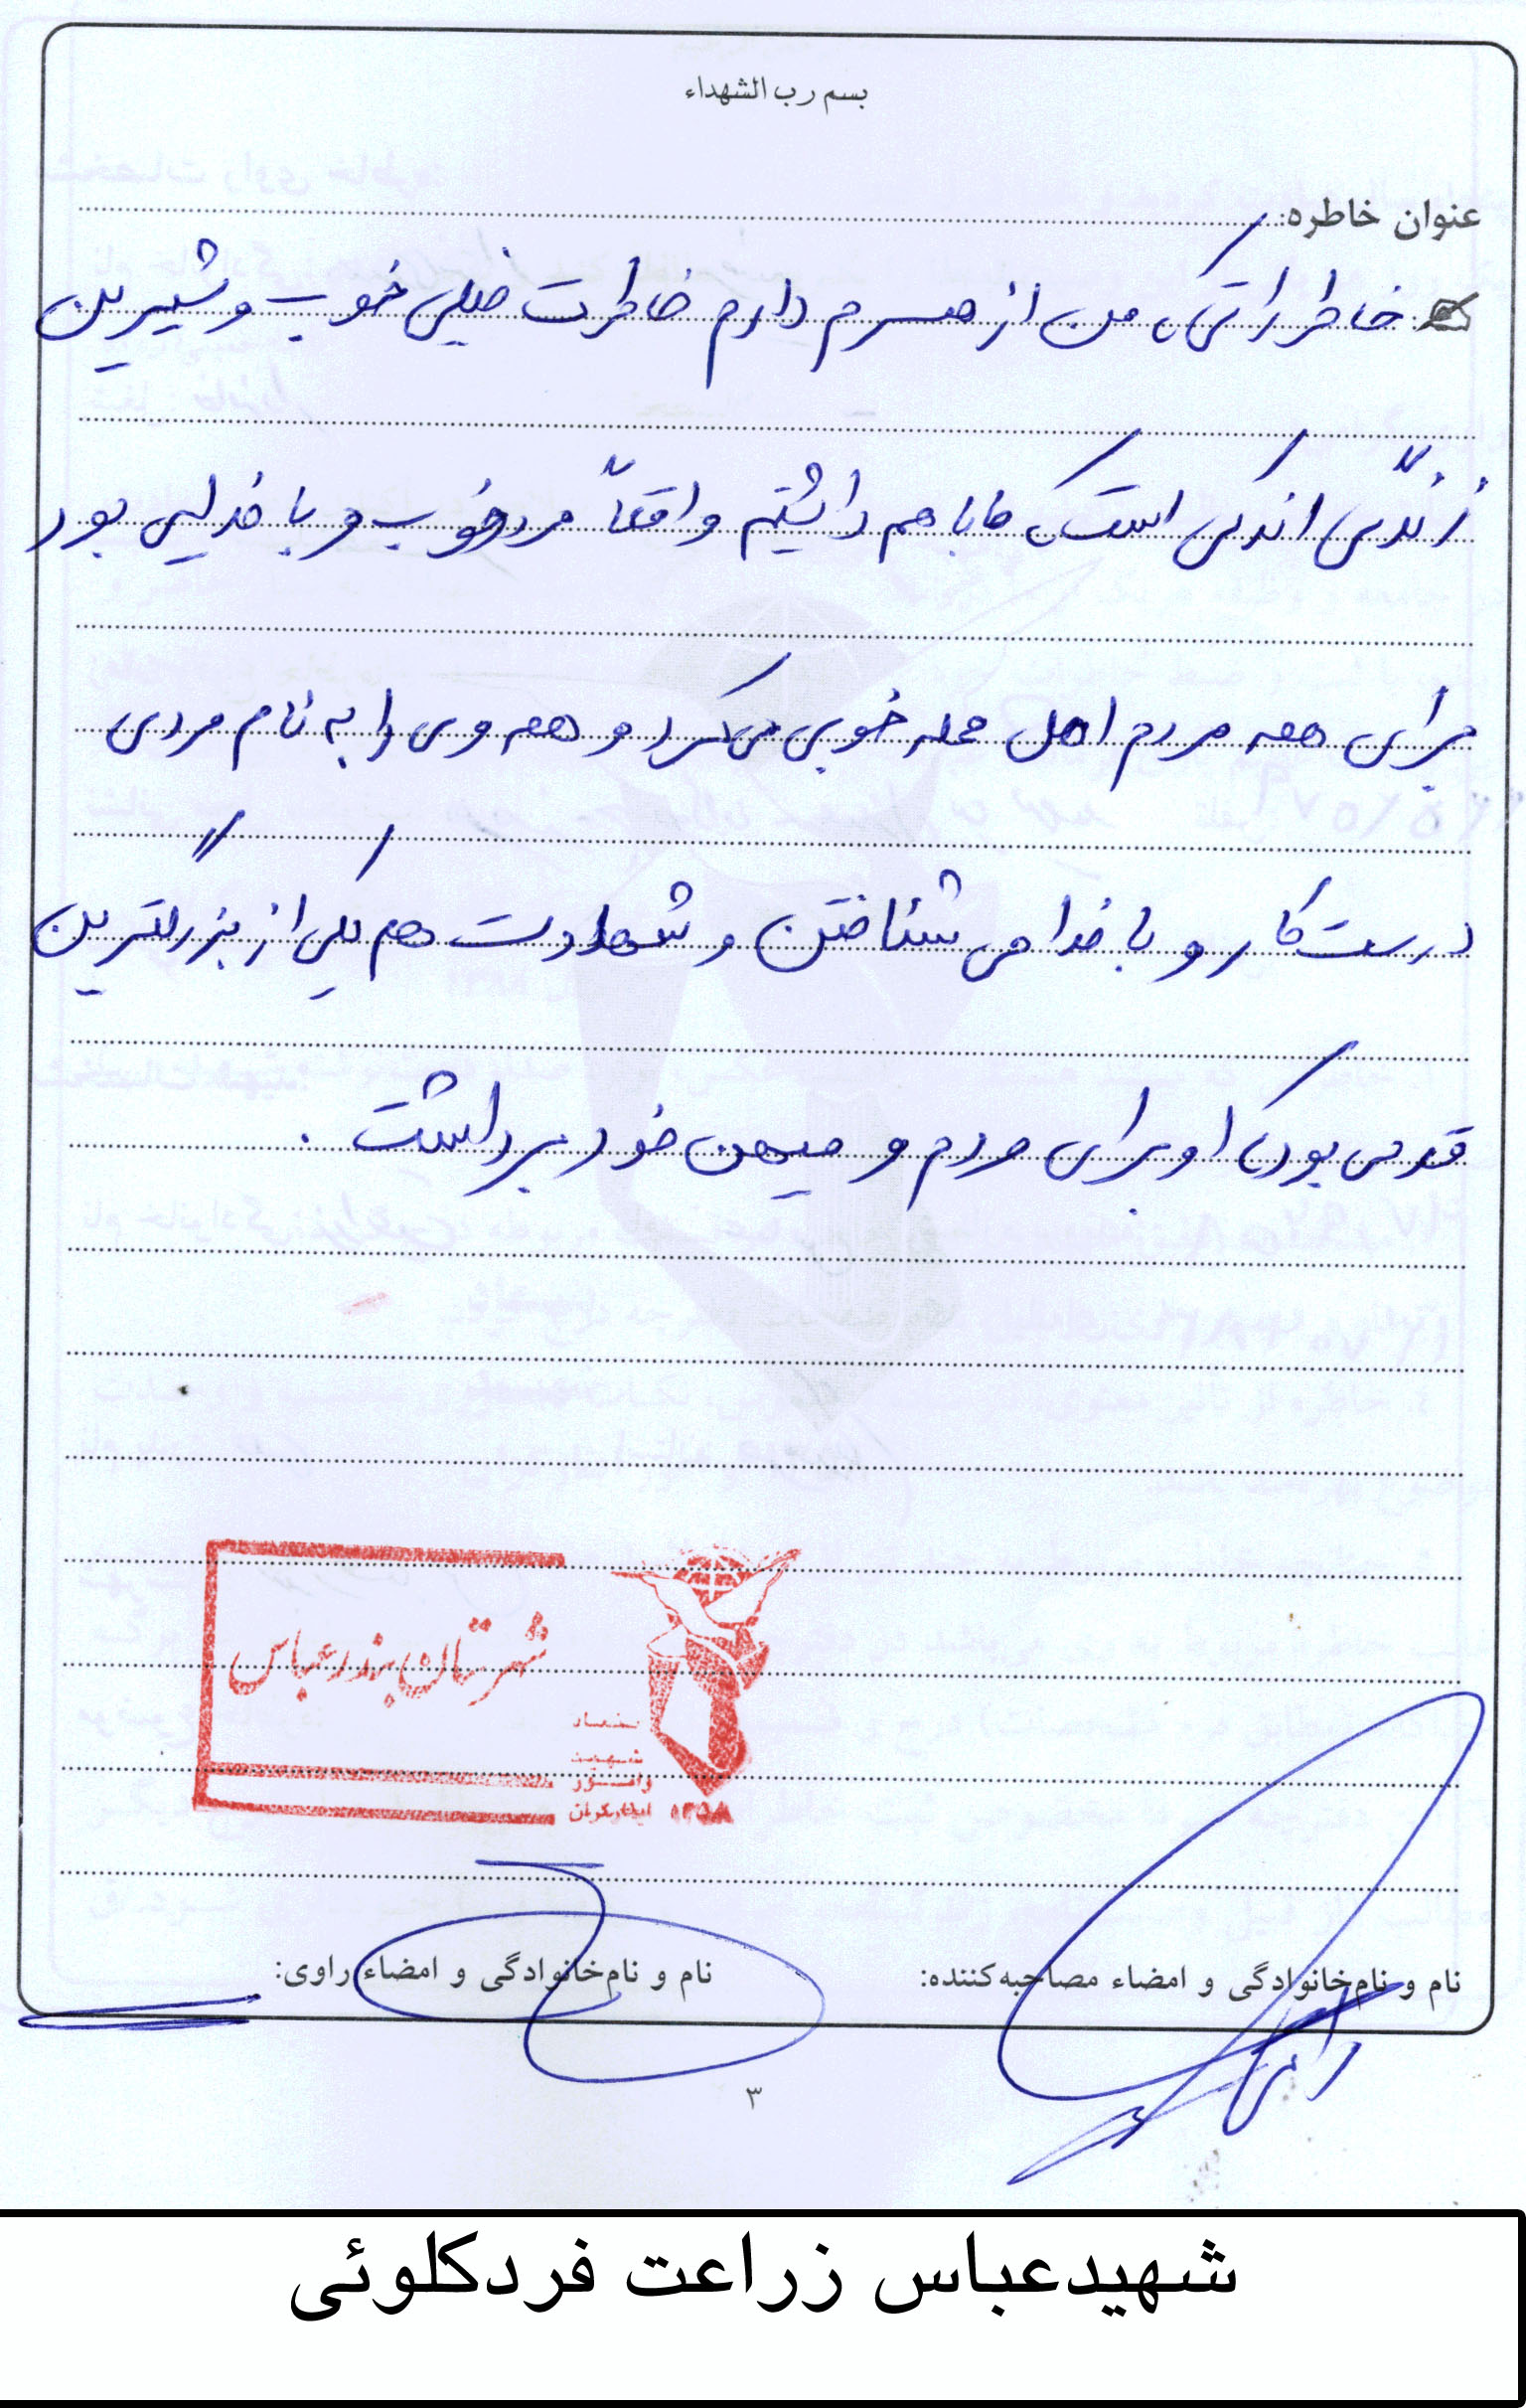 بسم رب الشهداء
عنوان خاطره:
خاطراتی که من از همسرم دارم خاطرات خیلی خوب و شیرین
زندگی اندکی است که ما با هم داشتیم واقعاً مرد خوب و با خدایی بود
برای همه مردم اهل محله خوبی می‌کرد و همه وی را به نام مردی
درست کار و با خدا می شناختن و شهادت هم یکی از بزرگترین
قدمی بود که او برای مردم و میهن خود برداشت .
شهرستان بندرعباس
بنیاد
شهید
وامور
ایثارگران ۱۳۵۸
نام و نام‌خانوادگی و امضاء مصاحبه‌کننده:
نام و نام‌خانوادگی و امضاء راوی:
۳
شهیدعباس زراعت فردکلوئی